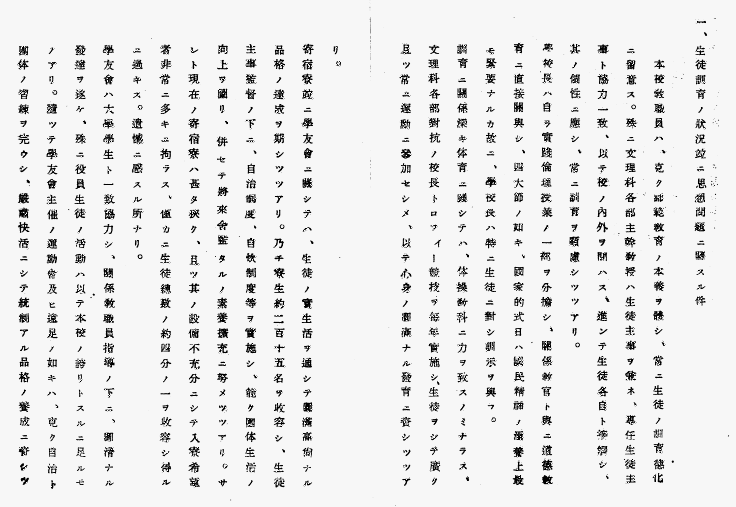 一、生徒訓育ノ狀況竝ニ思想問題ニ關スル件
本校敎職員ハ、克ク師範敎育ノ本義ヲ體シ、常ニ生徒ノ訓育德化
ニ留意ス。殊ニ文理科各部主幹敎授ハ生徒主事ヲ兼ネ、專任生徒主
事ト協力一致、以テ校ノ內外ヲ問ハス、進ンテ生徒各自ト等シク、
其ノ個性ニ應シ、常ニ訓育ヲ考慮シツツアリ。
學校長ハ自ラ實踐倫理授業ノ一部ヲ分擔シ、關係敎官ト與ニ道德敎
育ニ直接關與シ、四大節ノ如キ、國家的式日ハ國民精神ノ涵養上最
モ緊要ナルカ故ニ、學校長ハ特ニ生徒ニ對シ訓示ヲ與フ。
訓育ニ關係深キ体育ニ關シテハ、体操敎科ニ力ヲ致スノミナラス、
文理科各部對抗ノ校長トロフイー競技ヲ每年實施シ、生徒ヲシテ廣ク
且ツ常ニ運動ニ參加セシメ、以テ心身ノ圓滿ナル發育ニ資シツツア
リ。
寄宿寮竝ニ學友會ニ關シテハ、生徒ノ實生活ヲ通シテ圓滿高尙ナル
品格ノ達成ヲ期シツツアリ。乃チ寮生約二百十五名ヲ收容シ、生徒
主事監督ノ下ニ、自治制度、自炊制度等ヲ實施シ、能ク團体生活ノ
向上ヲ圖リ、併セテ將來舍監タルノ素養擴充ニ努メツツアリ。サ
レト現在ノ寄宿寮ハ甚タ狹ク、且ツ其ノ設備不充分ニシテ入寮希望
者非常ニ多キニ拘ラス、僅カニ生徒總數ノ約四分ノ一ヲ收容シ得ル
ニ過キス。遺憾ニ感スル所ナリ。
學友會ハ大學學生ト一致協力シ、關係敎職員指導ノ下ニ、圓滑ナル
發達ヲ遂ケ、殊ニ役員生徒ノ活動ハ以テ本校ノ誇リトスルニ足ルモ
ノアリ。隨ツテ學友會主催ノ運動會及ヒ遠足ノ如キハ、克ク自治ト
團体ノ習練ヲ完ウシ、嚴肅快活ニシテ統制アル品格ノ養成ニ資シツツ